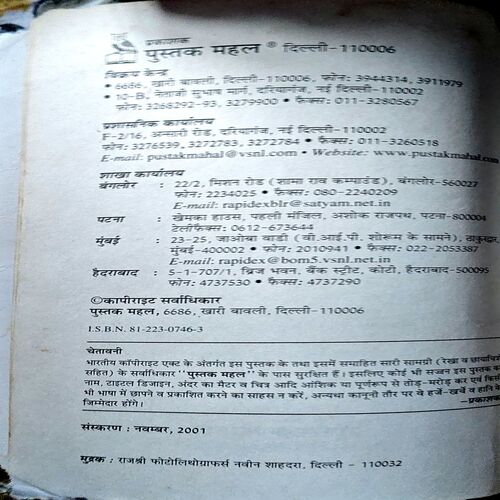 प्रकाशक
पुस्तक महल ® दिल्ली-110006
विक्रय केन्द्र
• 6686, खारी बावली, दिल्ली-110006, फोन: 3944314, 3911979
• 10-B, नेताजी सुभाष मार्ग, दरियागंज, नई दिल्ली-110002
फोन: 3268292-93, 3279900 • फैक्स: 011-3280567
प्रशासनिक कार्यालय
F-2/16, अन्सारी रोड, दरियागंज, नई दिल्ली-110002
फोन: 3276539, 3272783, 3272784 • फैक्स: 011-3260518
E-mail: pustakmahal@vsnl.com • Website: www.pustakmahal.com
शाखा कार्यालय
बंगलोर : 22/2, मिशन रोड (शामा राव कम्पाउंड), बंगलोर-560027
फोन: 2234025 • फैक्स: 080-2240209
E-mail: rapidexblr@satyam.net.in
पटना : खेमका हाउस, पहली मंजिल, अशोक राजपथ, पटना-800004
टेलीफैक्स: 0612-673644
मुंबई : 23-25, जाओबा वाड़ी (वी.आई.पी. शोरूम के सामने), ठाकुरद्वार,
मुंबई-400002 • फोन: 2010941 • फैक्स: 022-2053387
E-mail: rapidex@bom5.vsnl.net.in
हैदराबाद : 5-1-707/1, ब्रिज भवन, बैंक स्ट्रीट, कोटी, हैदराबाद-500095
फोन: 4737530 • फैक्स: 4737290
©कापीराइट सर्वाधिकार
पुस्तक महल, 6686, खारी बावली, दिल्ली-110006
I.S.B.N. 81-223-0746-3
चेतावनी
भारतीय कॉपीराइट एक्ट के अंतर्गत इस पुस्तक के तथा इसमें समाहित सारी सामग्री (रेखा व छायाचित्रों
सहित) के सर्वाधिकार "पुस्तक महल" के पास सुरक्षित हैं। इसलिए कोई भी सज्जन इस पुस्तक का
नाम, टाइटल डिजाइन, अंदर का मैटर व चित्र आदि आंशिक या पूर्णरूप से तोड़-मरोड़ कर एवं किसी
भी भाषा में छापने व प्रकाशित करने का साहस न करें, अन्यथा कानूनी तौर पर वे हर्जे-खर्चे व हानि के
जिम्मेदार होंगे। -प्रकाशक
संस्करण : नवम्बर, 2001
मुद्रक : राजश्री फोटोलिथोग्राफर्स नवीन शाहदरा, दिल्ली - 110032